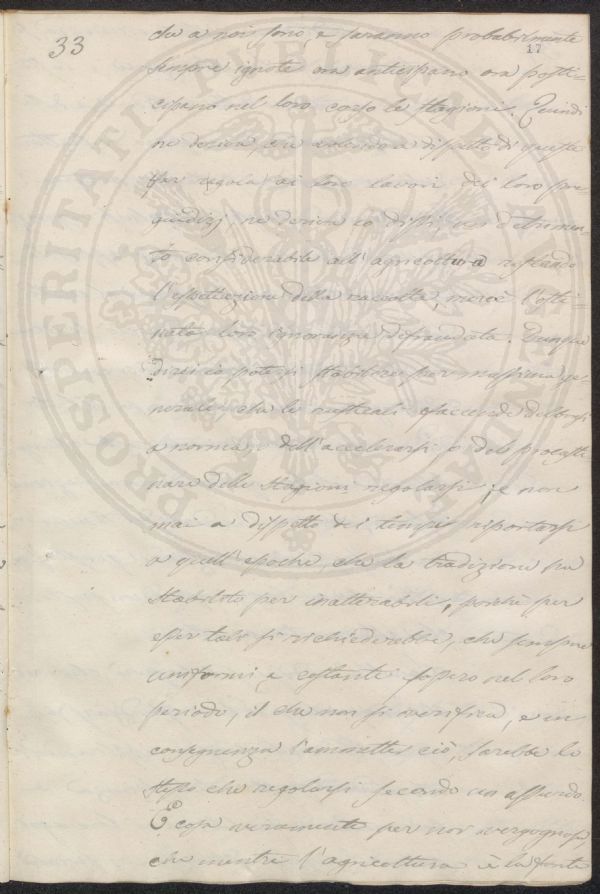 33
17
che a noi sono, e saranno probabilmente
sempre ignote ora anticipano ora posti-
cipano nel loro corso le stagioni. Quindi
ne deriva, che volendo a dispetto di queste
far regola ai loro lavori dei loro pre-
giudizj, ne deriva io dissi, un detrimen-
to considerabile all'agricoltura restando
l'aspettazione della raccolta, mercè l'osti-
nata loro ignoranza defraudata. Dunque
direi io potersi stabilire per massima ge-
nerale, che le rusticali faccende debbansi
a norma, o dell'accelerarsi o del procasti-
nare delle stagioni regolarsi, e non
mai a dispetto dei tempi riportarsi
a quell'epoche, che la tradizione ha
stabilito per inalterabili, poichè per
esser tali si richiederebbe, che sempre
uniformi e costanti fossero nel loro
periodo, il che non si verifica, e in
conseguenza l'ammetter ciò, sarebbe lo
stesso che regolarsi secondo un assurdo.
È cosa veramente per noi vergognosa,
che mentre l'agricoltura è la fonte
PROSPERITATI PUBLICAE AUGENDAE